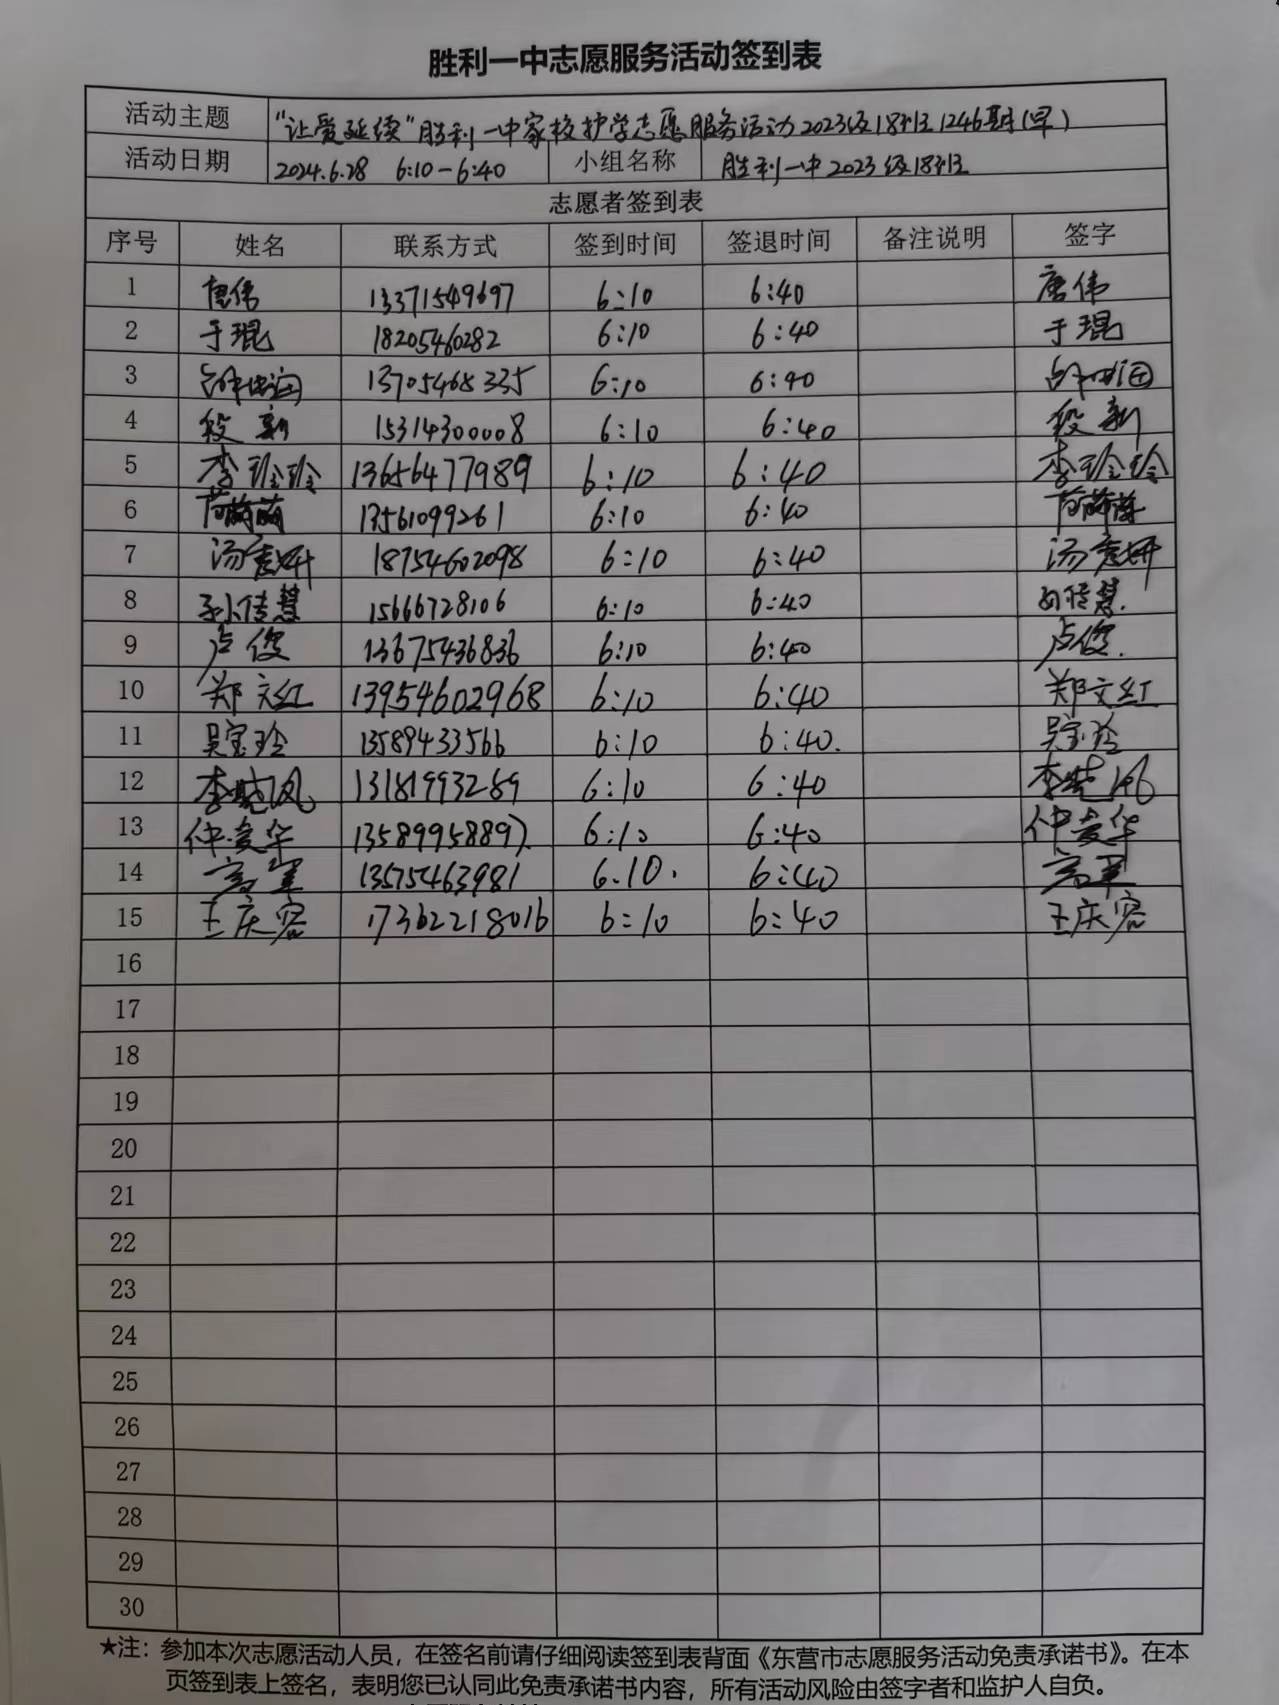 胜利一中志愿服务活动签到表
活动主题 "让爱延续"胜利一中家校护学志愿服务活动2023级18班1246期(早)
活动日期 2024.6.28 6:10-6:40 小组名称 胜利一中2023级18班
志愿者签到表
序号 姓名 联系方式 签到时间 签退时间 备注说明 签字
1 唐伟 13371549697 6:10 6:40 唐伟
2 于琨 18205460282 6:10 6:40 于琨
3 13705468335 6:10 6:40
4 段新 15314300008 6:10 6:40 段新
5 李玲玲 13656477989 6:10 6:40 李玲玲
6 苟萌萌 13561099261 6:10 6:40 苟萌萌
7 汤惠妍 18754602098 6:10 6:40 汤惠妍
8 孙传慧 15666728106 6:10 6:40 孙传慧.
9 卢俊 13675436836 6:10 6:40 卢俊.
10 郑文红 13954602968 6:10 6:40 郑文红
11 吴宝玲 13589433566 6:10 6:40. 吴宝玲
12 李晓凤 13181993289 6:10 6:40 李晓凤
13 仲爱华 13589958897. 6:10 6:40 仲爱华
14 高军 13575463981 6.10. 6:40 高军
15 王庆容 17362218016 6:10 6:40 王庆容
16
17
18
19
20
21
22
23
24
25
26
27
28
29
30
★注：参加本次志愿活动人员，在签名前请仔细阅读签到表背面《东营市志愿服务活动免责承诺书》。在本
页签到表上签名，表明您已认同此免责承诺书内容，所有活动风险由签字者和监护人自负。